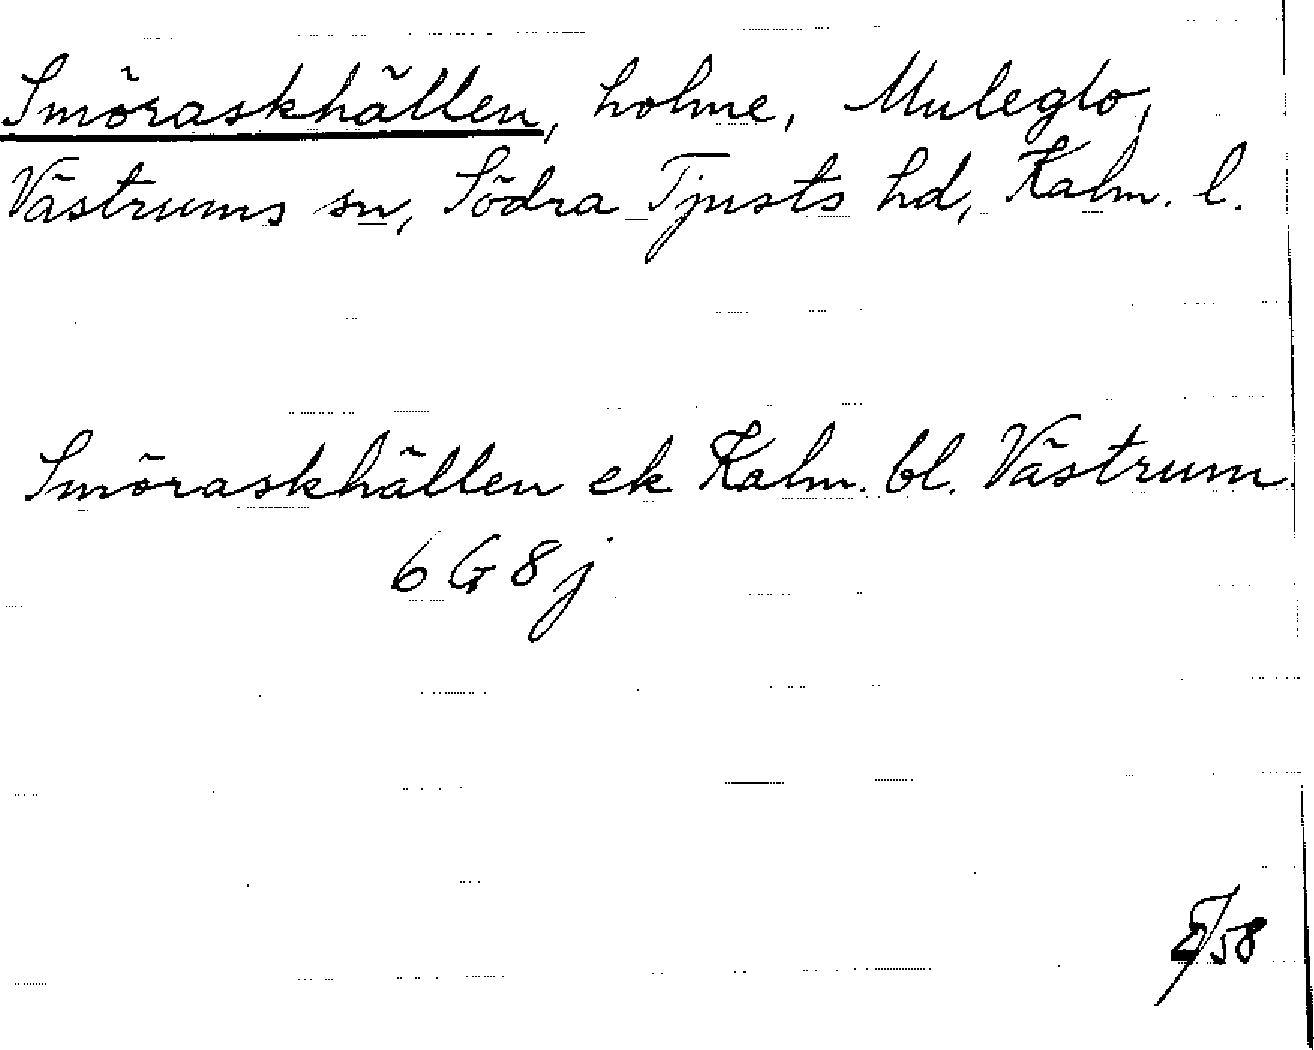 Smöraskhällen, holme, Muleglo,
Västrums sn, Södra Tjusts hd, Kalm. l.
Smöraskhällen ek Kalm. bl. Västrum
6 G 8 j